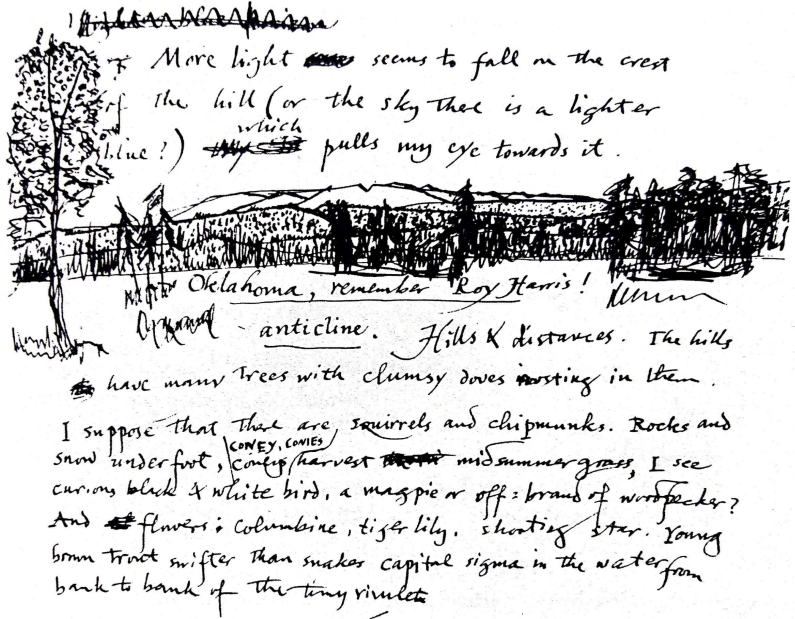 More light seems to fall on the crest
of the hill (or the sky there is a lighter
blue?) which pulls my eye towards it.
Oklahoma, remember Roy Harris!
anticline. Hills & distances. The hills
have many trees with clumsy doves nesting in them.
I suppose that there are squirrels and chipmunks. Rocks and
CONEY, CONIES
snow underfoot, harvest midsummer grass, I see
curious black & white bird, a magpie or off-brand of woodpecker?
And flowers: columbine, tiger lily, shooting star. Young
brown trout swifter than snakes capital sigma in the water from
bank to bank of the tiny rivulet